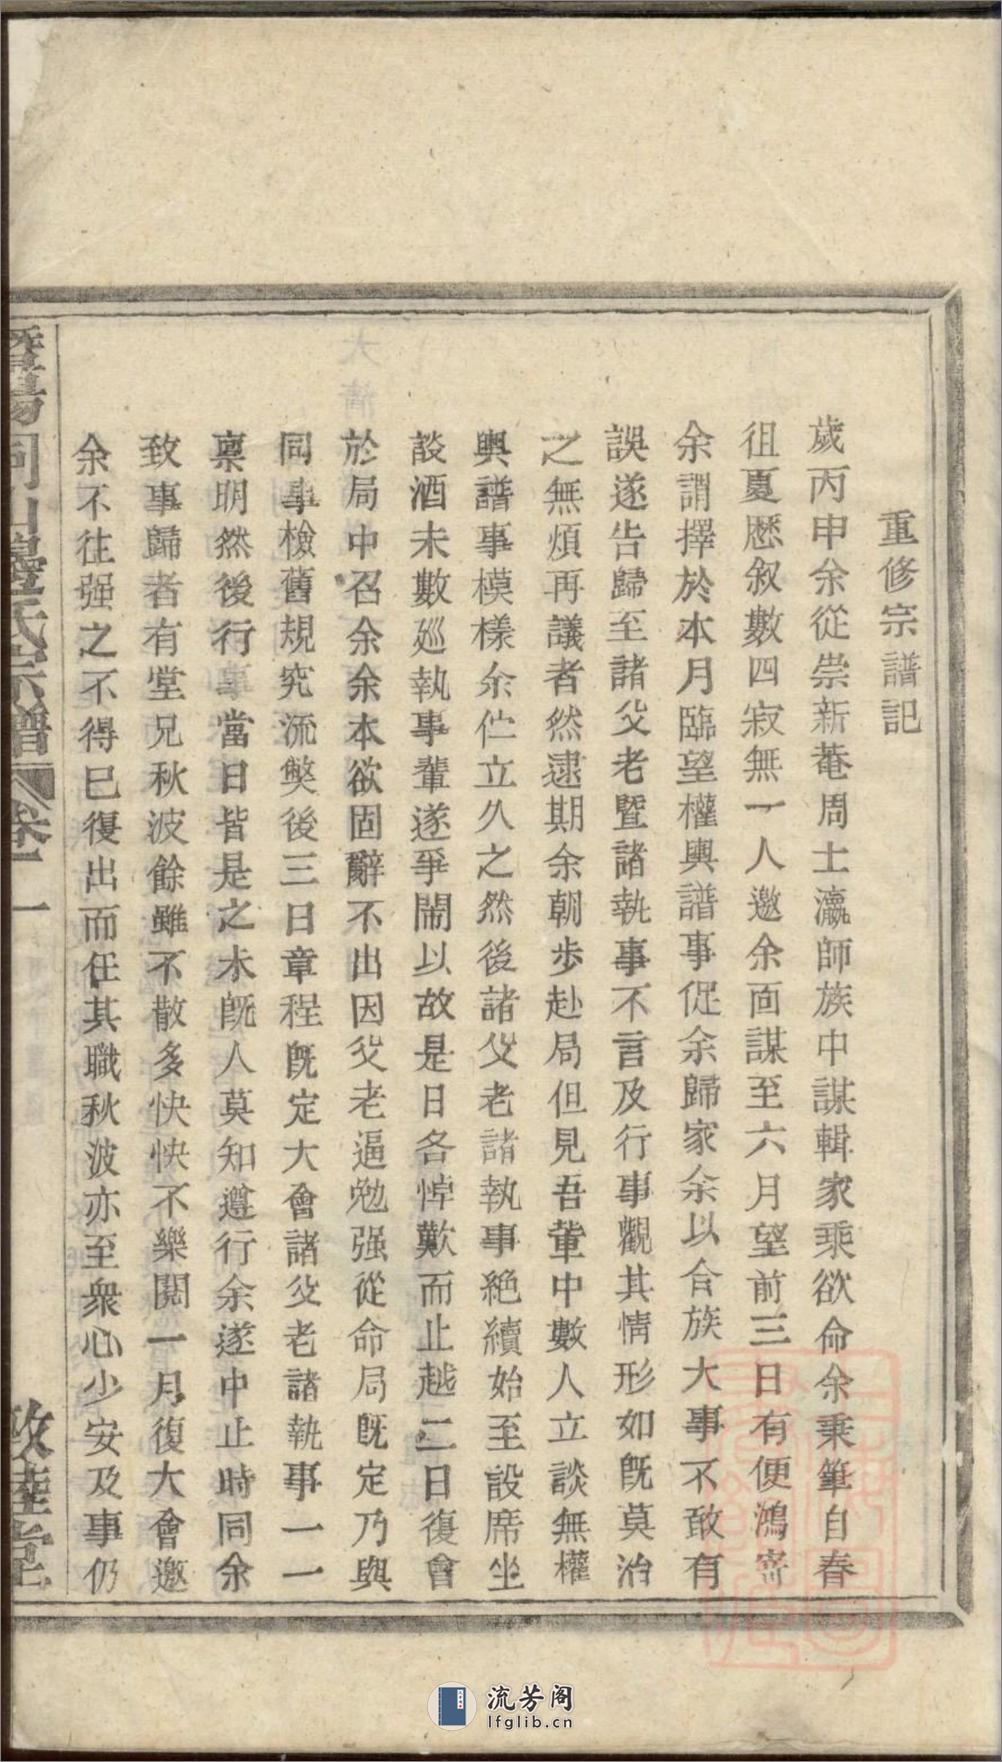 重修宗譜記
歲丙申余從崇新菴周士瀛師族中謀輯家乘欲命余秉筆自春
徂夏歷叙數四寂無一人邀余面謀至六月望前三日有便鴻寄
余謂擇於本月臨望權輿譜事促余歸家余以合族大事不敢有
誤遂告歸至諸父老暨諸執事不言及行事觀其情形如旣莫治
之無煩再議者然逮期余朝步赴局但見吾輩中數人立談無權
輿譜事模樣余伫立久之然後諸父老諸執事絶續始至設席坐
談酒未數廵執事輩遂爭鬧以故是日各悼歎而止越二日復會
於局中召余余本欲固辭不出因父老逼勉强從命局旣定乃與
同事檢舊規究流獘後三日章程旣定大會諸父老諸執事一一
稟明然後行事當日皆是之未旣人莫知遵行余遂中止時同余
致事歸者有堂兄秋波餘雖不散多怏怏不樂閱一月復大會邀
余不往强之不得已復出而任其職秋波亦至衆心少安及事仍
暨陽同山邊氏宗譜 卷一 一
敦睦堂
流芳阁
lfglib.cn